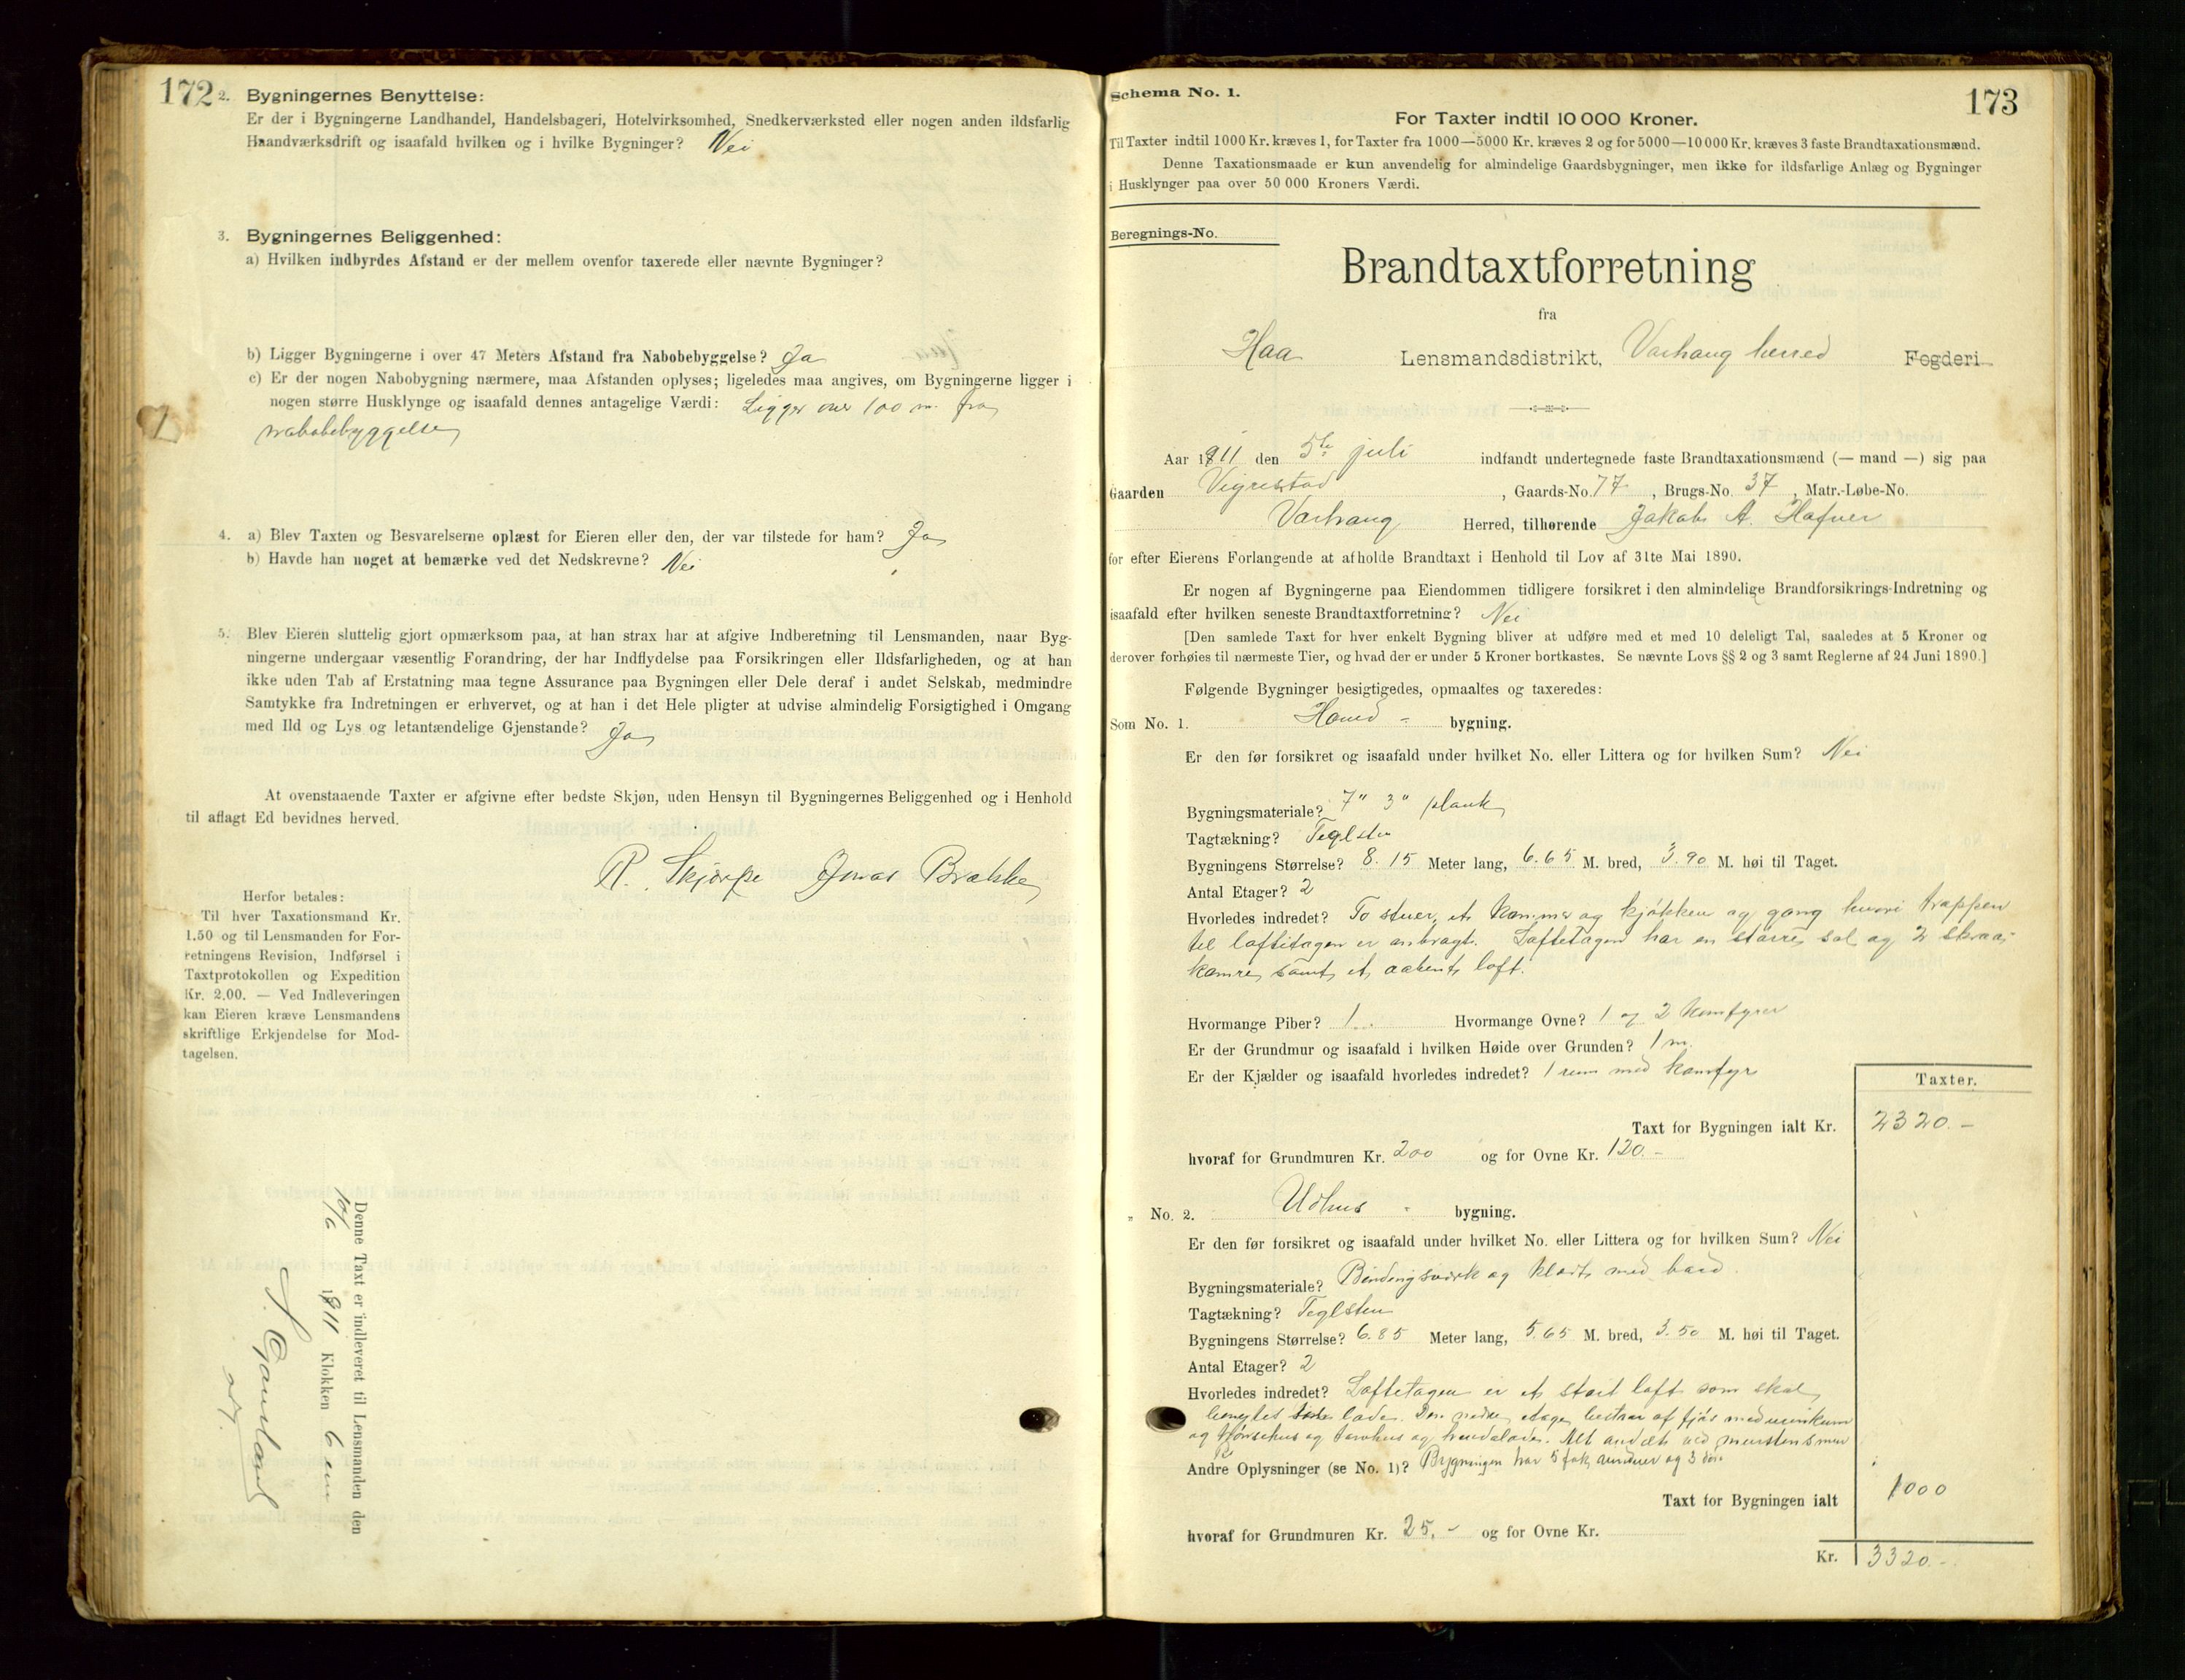 172
2. Bygningernes Benyttelse:
Er der i Bygningerne Landhandel, Handelsbageri, Hotelvirksomhed, Snedkerværksted eller nogen anden ildsfarlig
Haandværksdrift og isaafald hvilken og i hvilke Bygninger? Nei
3. Bygningernes Beliggenhed:
a) Hvilken indbyrdes Afstand er der mellem ovenfor taxerede eller nævnte Bygninger?
b) Ligger Bygningerne i over 47 Meters Afstand fra Nabobebyggelse? Ja
c) Er der nogen Nabobygning nærmere, maa Afstanden oplyses; ligeledes maa angives, om Bygningerne ligger i
nogen større Husklynge og isaafald dennes antagelige Værdi: Ligger over 100 m. fra
nabobebyggelse
4. a) Blev Taxten og Besvarelserne oplæst for Eieren eller den, der var tilstede for ham? Ja
b) Havde han noget at bemærke ved det Nedskrevne? Nei
5. Blev Eieren sluttelig gjort opmærksom paa, at han strax har at afgive Indberetning til Lensmanden, naar Byg-
ningerne undergaar væsentlig Forandring, der har Indflydelse paa Forsikringen eller Ildsfarligheden, og at han
ikke uden Tab af Erstatning maa tegne Assurance paa Bygningen eller Dele deraf i andet Selskab, medmindre
Samtykke fra Indretningen er erhvervet, og at han i det Hele pligter at udvise almindelig Forsigtighed i Omgang
med Ild og Lys og letantændelige Gjenstande? Ja
At ovenstaaende Taxter er afgivne efter bedste Skjøn, uden Hensyn til Bygningernes Beliggenhed og i Henhold
til aflagt Ed bevidnes herved.
R. Skjørpe Jonas Brække
Herfor betales:
Til hver Taxationsmand Kr.
1.50 og til Lensmanden for For-
retningens Revision, Indførsel i
Taxtprotokollen og Expedition
Kr. 2.00. — Ved Indleveringen
kan Eieren kræve Lensmandens
skriftlige Erkjendelse for Mod-
tagelsen.
Denne Taxt er indleveret til Lensmanden den
1911 Klokken 6
173
Schema No. 1.
For Taxter indtil 10 000 Kroner.
Til Taxter indtil 1000 Kr. kræves 1, for Taxter fra 1000—5000 Kr. kræves 2 og for 5000—10 000 Kr. kræves 3 faste Brandtaxationsmænd.
Denne Taxationsmaade er kun anvendelig for almindelige Gaardsbygninger, men ikke for ildsfarlige Anlæg og Bygninger
i Husklynger paa over 50 000 Kroners Værdi.
Beregnings-No.
Brandtaxtforretning
fra
Haa Lensmandsdistrikt, Varhaug herred Fogderi
Aar 1911 den 5te juli indfandt undertegnede faste Brandtaxationsmænd (— mand —) sig paa
Gaarden Vigrestad, Gaards-No. 77, Brugs-No. 37, Matr.-Løbe-No.
Varhaug Herred, tilhørende Jakob A. Hafner
for efter Eierens Forlangende at afholde Brandtaxt i Henhold til Lov af 31te Mai 1890.
Er nogen af Bygningerne paa Eiendommen tidligere forsikret i den almindelige Brandforsikrings-Indretning og
isaafald efter hvilken seneste Brandtaxtforretning? Nei
[Den samlede Taxt for hver enkelt Bygning bliver at udføre med et med 10 deleligt Tal, saaledes at 5 Kroner og
derover forhøies til nærmeste Tier, og hvad der er under 5 Kroner bortkastes. Se nævnte Lovs §§ 2 og 3 samt Reglerne af 24 Juni 1890.]
Følgende Bygninger besigtigedes, opmaaltes og taxeredes:
Som No. 1. Hoved - bygning.
Er den før forsikret og isaafald under hvilket No. eller Littera og for hvilken Sum? Nei
Bygningsmateriale? 7" 3" plank
Tagtækning? Teglsten
Bygningens Størrelse? 8.15 Meter lang, 6.65 M. bred, 3.90 M. høi til Taget.
Antal Etager? 2
Hvorledes indredet? To stuer, et kammer og kjøkken og gang hvori trappen
til loftetagen er anbragt. Loftetagen har en større sal og 2 skraa-
kamre, samt et aabent loft.
Hvormange Piber? 1. Hvormange Ovne? 1 og 2 komfyrer
Er der Grundmur og isaafald i hvilken Høide over Grunden? 1 m.
Er der Kjælder og isaafald hvorledes indredet? 1 rum med komfyr
Taxter.
Taxt for Bygningen ialt Kr. 2320.-
hvoraf for Grundmuren Kr. 200 og for Ovne Kr. 120.-
" No. 2. Udhus - bygning.
Er den før forsikret og isaafald under hvilket No. eller Littera og for hvilken Sum? Nei
Bygningsmateriale? Bindingsværk og klædt med bord.
Tagtækning? Teglsten
Bygningens Størrelse? 6.85 Meter lang, 5.65 M. bred, 3.50 M. høi til Taget.
Antal Etager? 2
Hvorledes indredet? Loftetagen er et stort loft som skal
lade. Den nedre etage bestaar af fjøs med
og og og
Andre Oplysninger (se No. 1)? Bygningen har 5 fak vinduer og 3 døre
Taxt for Bygningen ialt 1000
hvoraf for Grundmuren Kr. 25.- og for Ovne Kr.
Kr. 3320.-